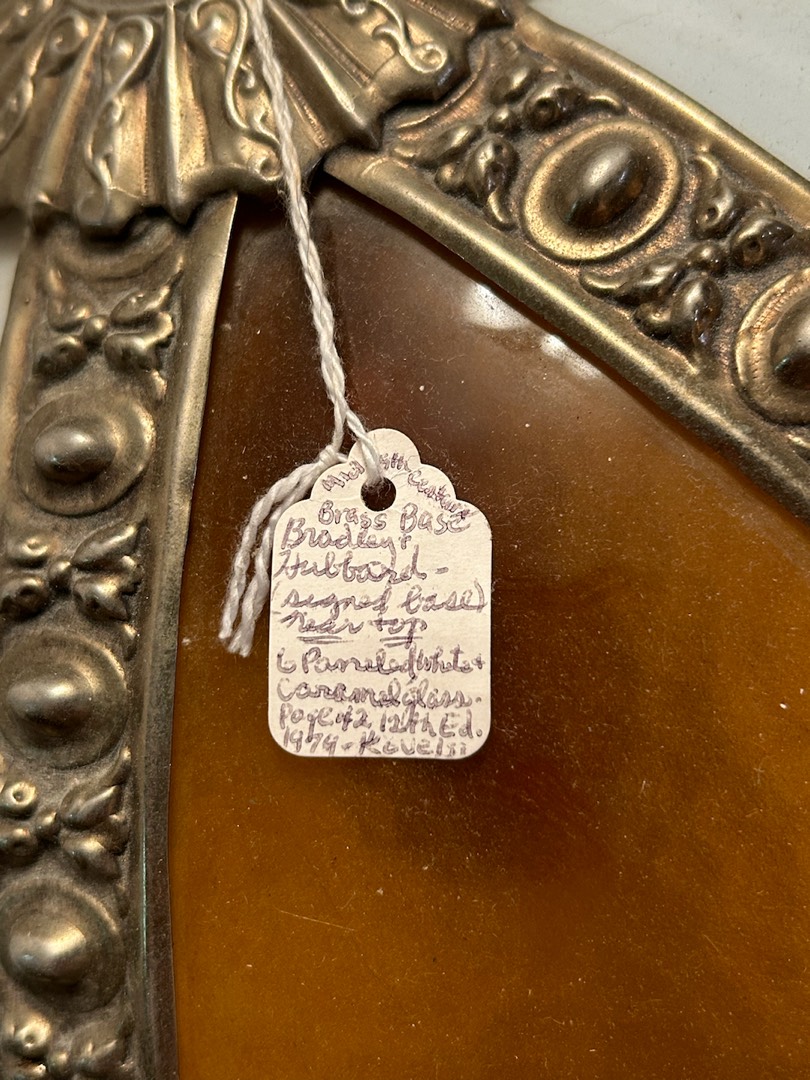 Mid 19th Century
Brass Base
Bradley +
Hubbard -
(signed base)
near top
6 Paneled White +
Caramel glass.
Page 42 12th Ed.
1979 - Kovels